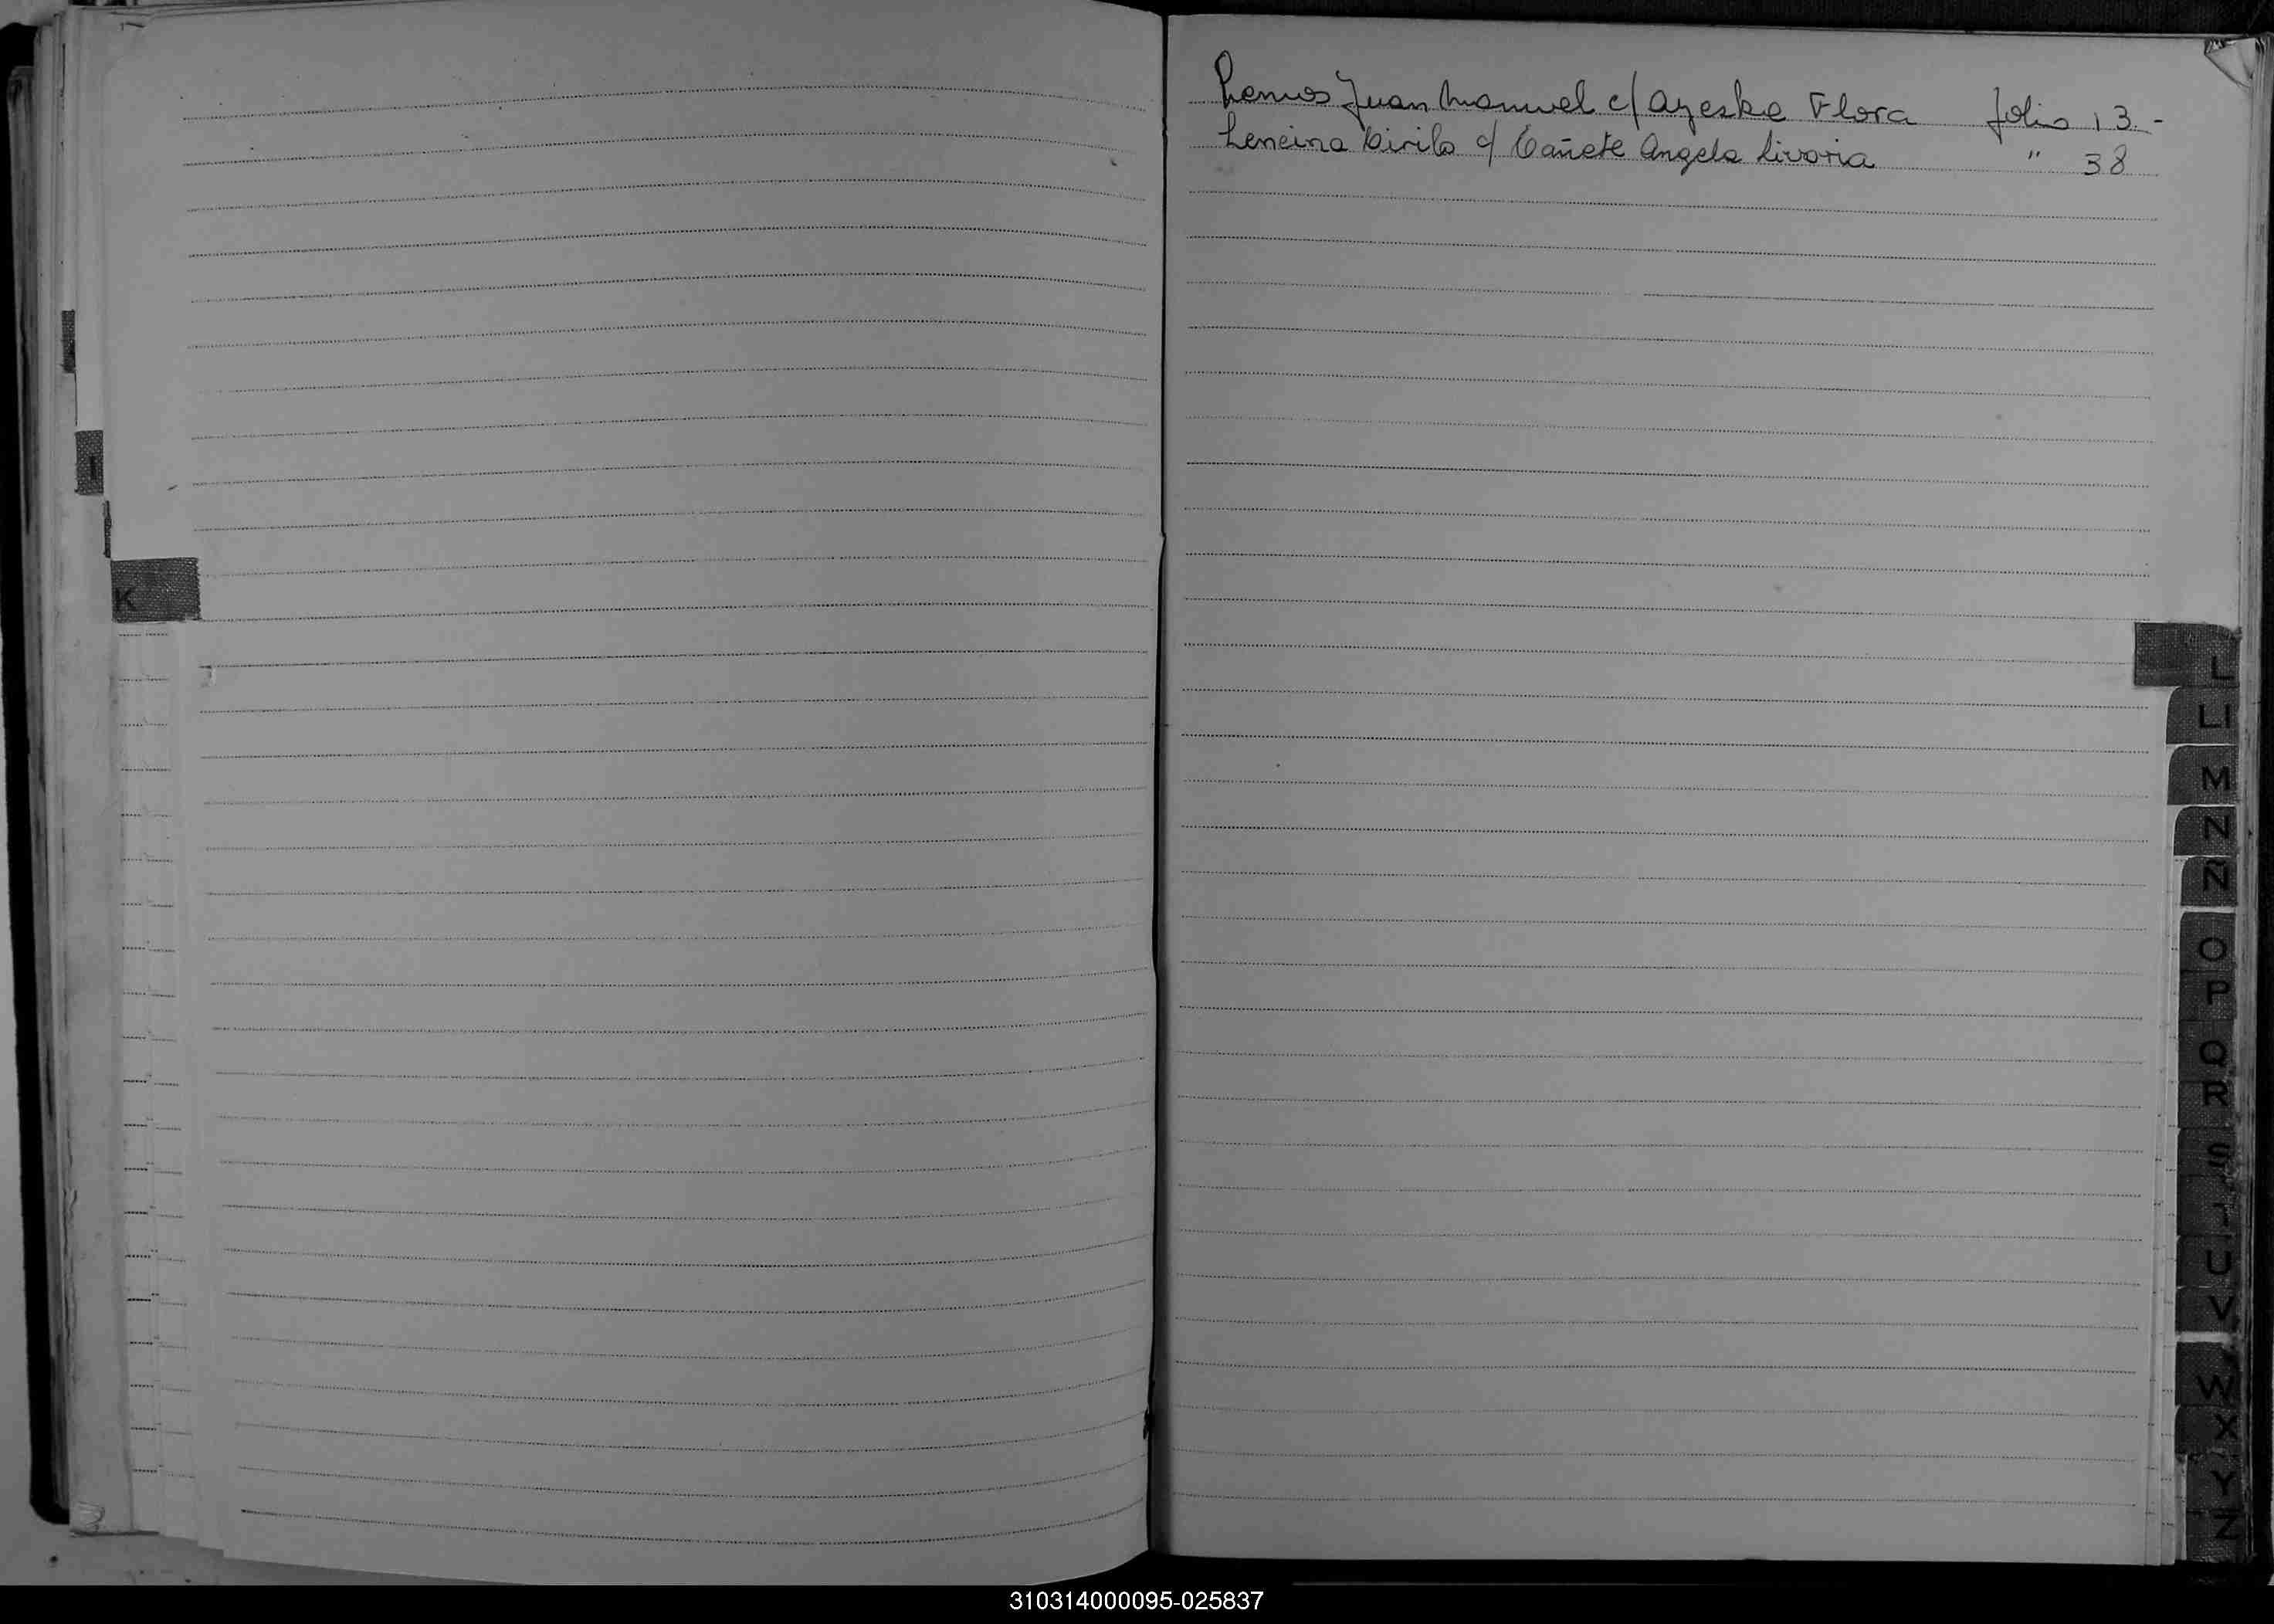 Lemos Juan Manuel c/ Ayeska Flora folio 13.-
Lencina Cirilo c/ Cañete Angela Livoria " 38
I
K
L
Ll
M
N
Ñ
O
P
Q
R
S
T
U
V
W
X
Y
Z
310314000095-025837